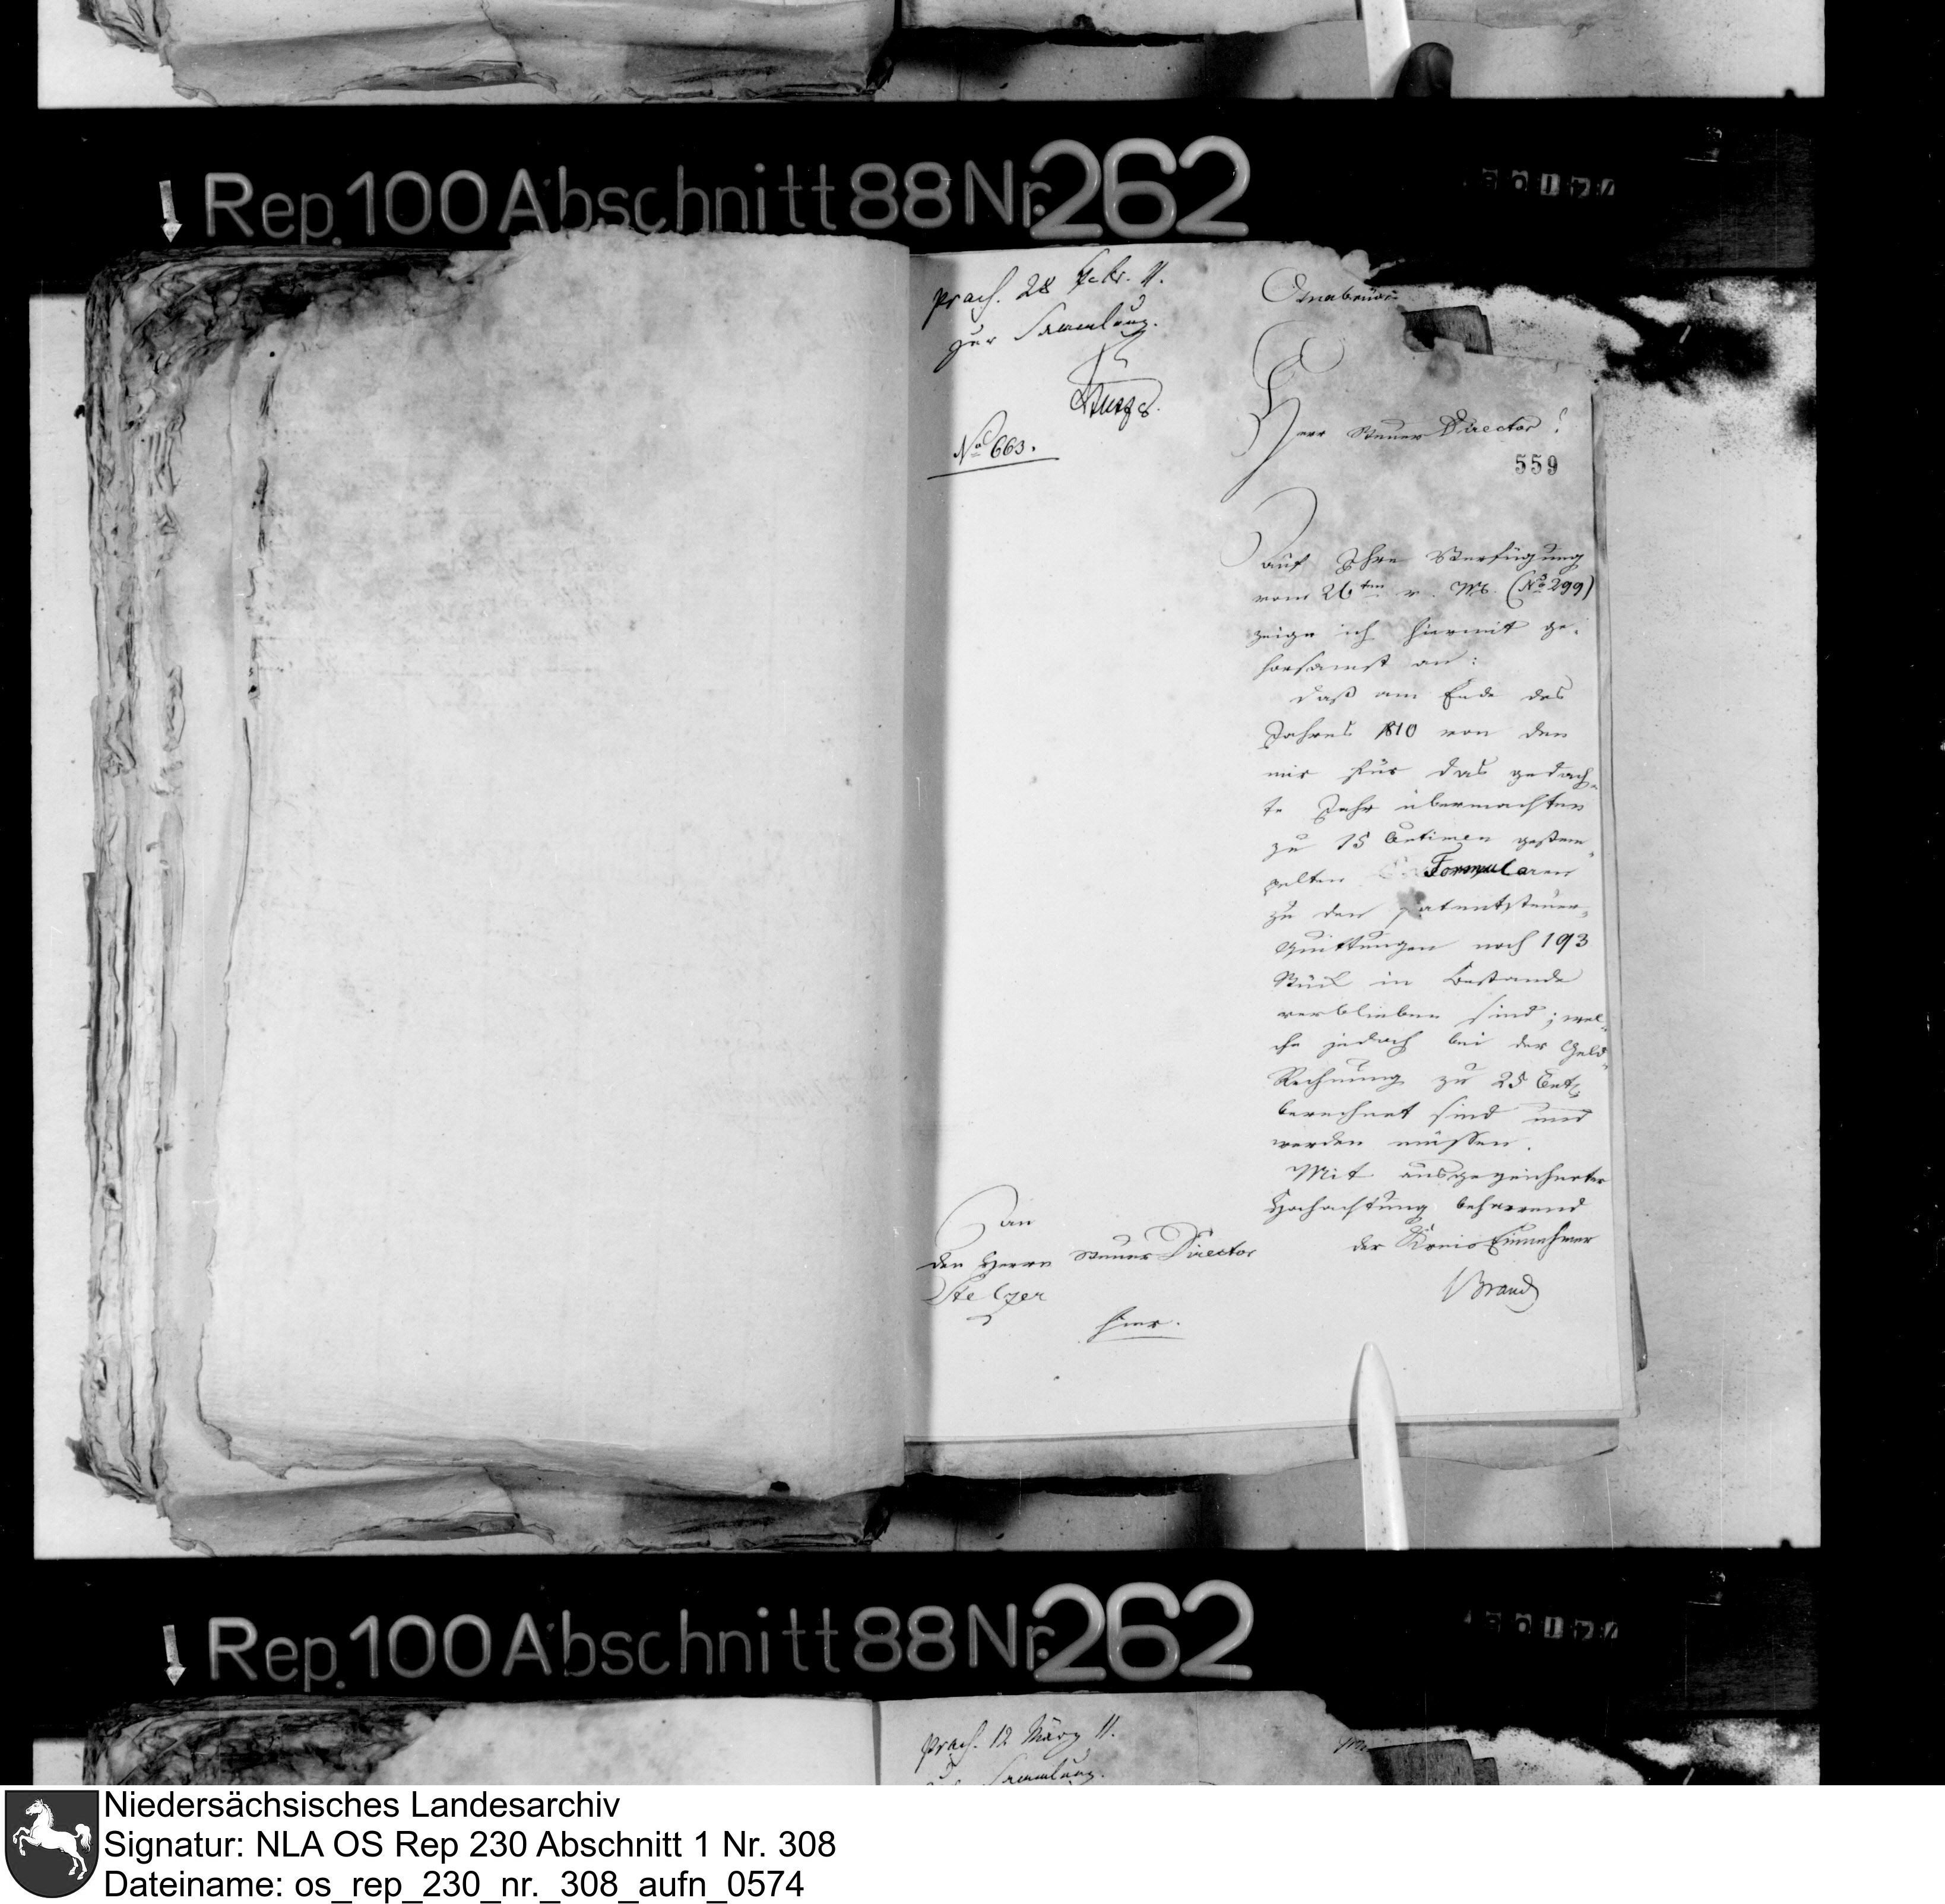 Rep. 100 Abschnitt 88 Nr. 262
praes. 28 Febr. 11.
zur Sammlung.
No 663.
Osnabrück
Herr Steuer Director!
559
Auf Ihre Verfügung
vom 26ten v. M. (No 299)
zeige ich hiermit ge-
horsamst an:
daß am Ende des
Jahres 1810 von den
mir für das gedach-
te Jahr übermachten
zu 15 Centimen gestem-
pelten Formularen
zu den Patentsteuer-
Quittungen noch 193
Stück in Bestande
verblieben sind; wel-
che jedoch bei der Geld-
Rechnung zu 25 Cent
berechnet sind und
werden müssen.
Mit ausgezeichneter
Hochachtung beharrend
der Kreis Einnehmer
Brand
An
den Herrn Steuer Director
Stelzer
hier.
Rep. 100 Abschnitt 88 Nr. 262
praes. 12 März 11.
Sammlung.
Niedersächsisches Landesarchiv
Signatur: NLA OS Rep 230 Abschnitt 1 Nr. 308
Dateiname: os_rep_230_nr._308_aufn_0574